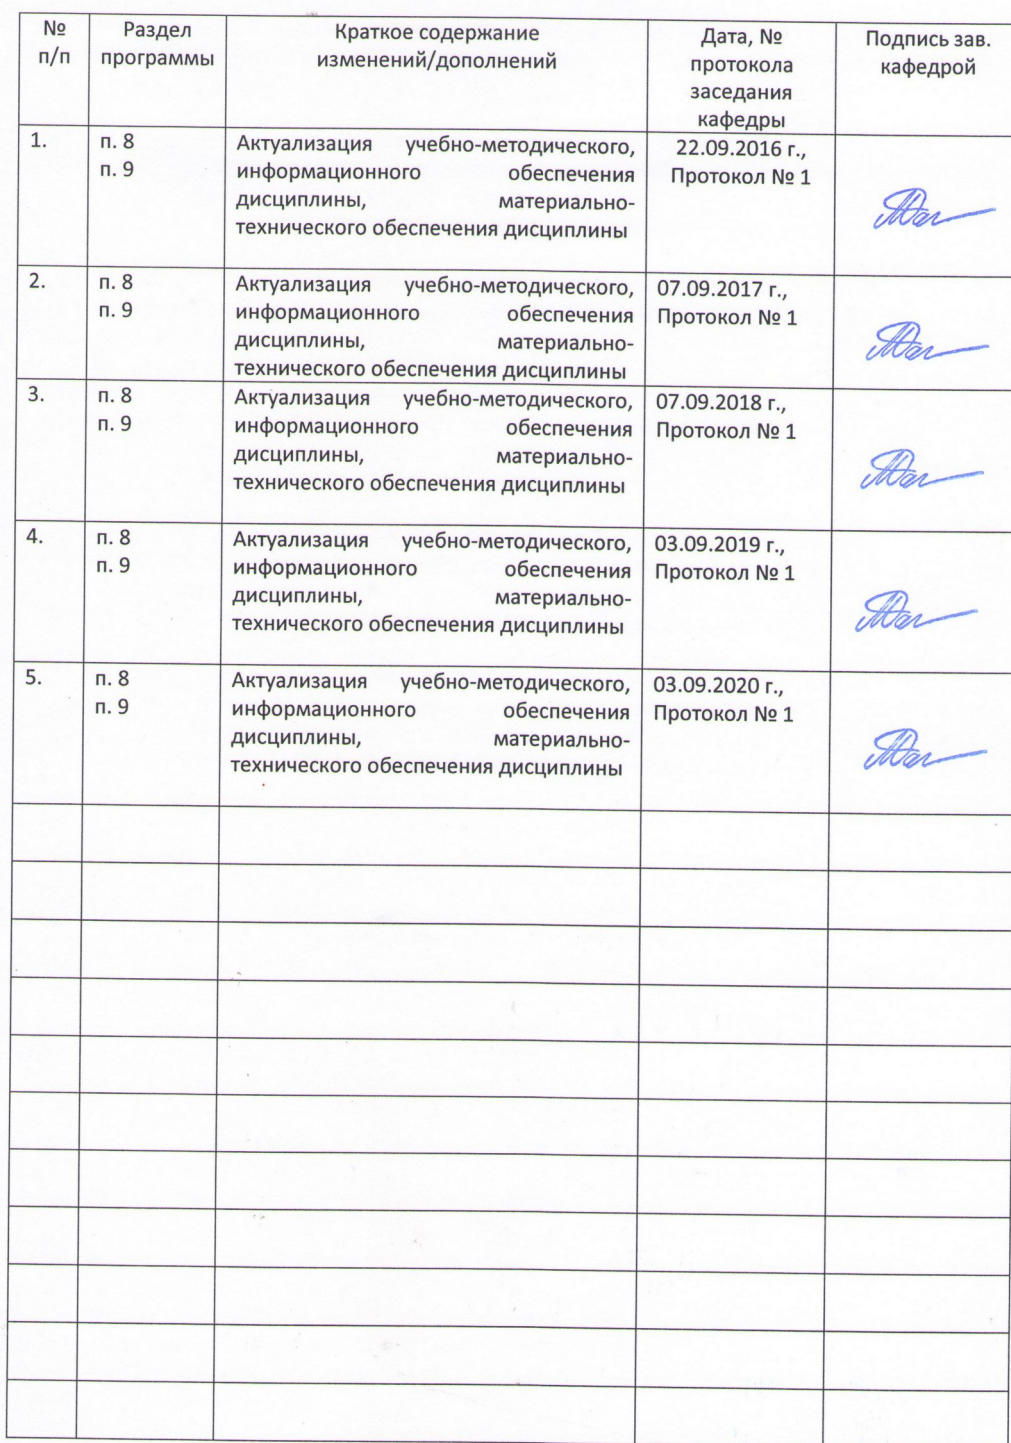 № п/п
Раздел программы
Краткое содержание изменений/дополнений
Дата, № протокола заседания кафедры
Подпись зав. кафедрой
1.
п. 8
п. 9
Актуализация учебно-методического,
информационного обеспечения
дисциплины, материально-
технического обеспечения дисциплины
22.09.2016 г.,
Протокол № 1
2.
п. 8
п. 9
Актуализация учебно-методического,
информационного обеспечения
дисциплины, материально-
технического обеспечения дисциплины
07.09.2017 г.,
Протокол № 1
3.
п. 8
п. 9
Актуализация учебно-методического,
информационного обеспечения
дисциплины, материально-
технического обеспечения дисциплины
07.09.2018 г.,
Протокол № 1
4.
п. 8
п. 9
Актуализация учебно-методического,
информационного обеспечения
дисциплины, материально-
технического обеспечения дисциплины
03.09.2019 г.,
Протокол № 1
5.
п. 8
п. 9
Актуализация учебно-методического,
информационного обеспечения
дисциплины, материально-
технического обеспечения дисциплины
03.09.2020 г.,
Протокол № 1